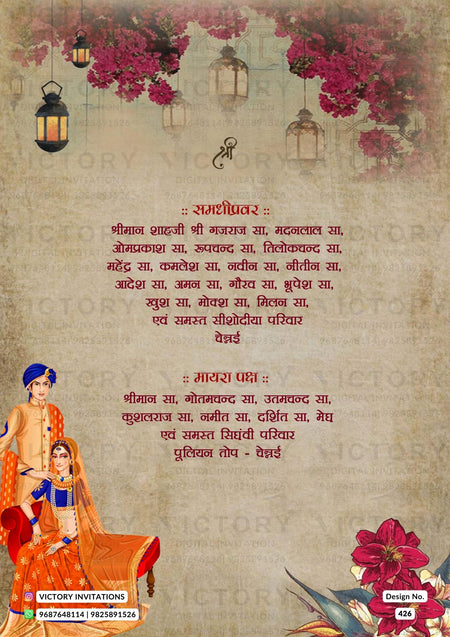 श्री
:: समधीप्रवर ::
श्रीमान शाहजी श्री गजराज सा, मदनलाल सा,
ओमप्रकाश सा, रूपचन्द सा, तिलोकचन्द सा,
महेंद्र सा, कमलेश सा, नवीन सा, नीतीन सा,
आदेश सा, अमन सा, गौरव सा, भूपेश सा,
खुश सा, मोक्श सा, मिलन सा,
एवं समस्त सीशोदीया परिवार
चेन्नई
:: मायरा पक्ष ::
श्रीमान सा, गोतमचन्द सा, उतमचन्द सा,
कुशलराज सा, नमीत सा, दर्शित सा, मेघ
एवं समस्त सिघंवी परिवार
पूलियन तोप - चेन्नई
VICTORY INVITATIONS
9687648114 | 9825891526
Design No.
426